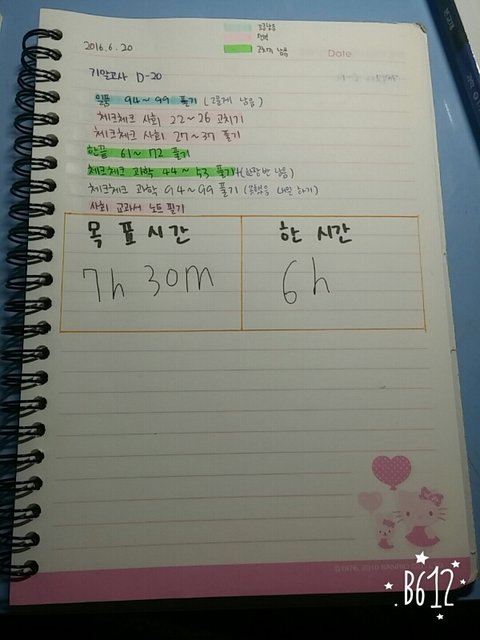 조금남음
완벽
고치기 남음
Date.
2016.6.20
기말고사 D-20
일품 94~99 풀기 (2문제 남음)
체크체크 사회 22~26 고치기
체크체크 사회 27~37 풀기
한끝 61~72 풀기
체크체크 과학 44~53 풀기 (한장반 남음)
체크체크 과학 94~99 풀기 (내일 하기)
사회 교과서 노트 필기
목표시간 한 시간
7h 30m 6h
SANRIO
B612